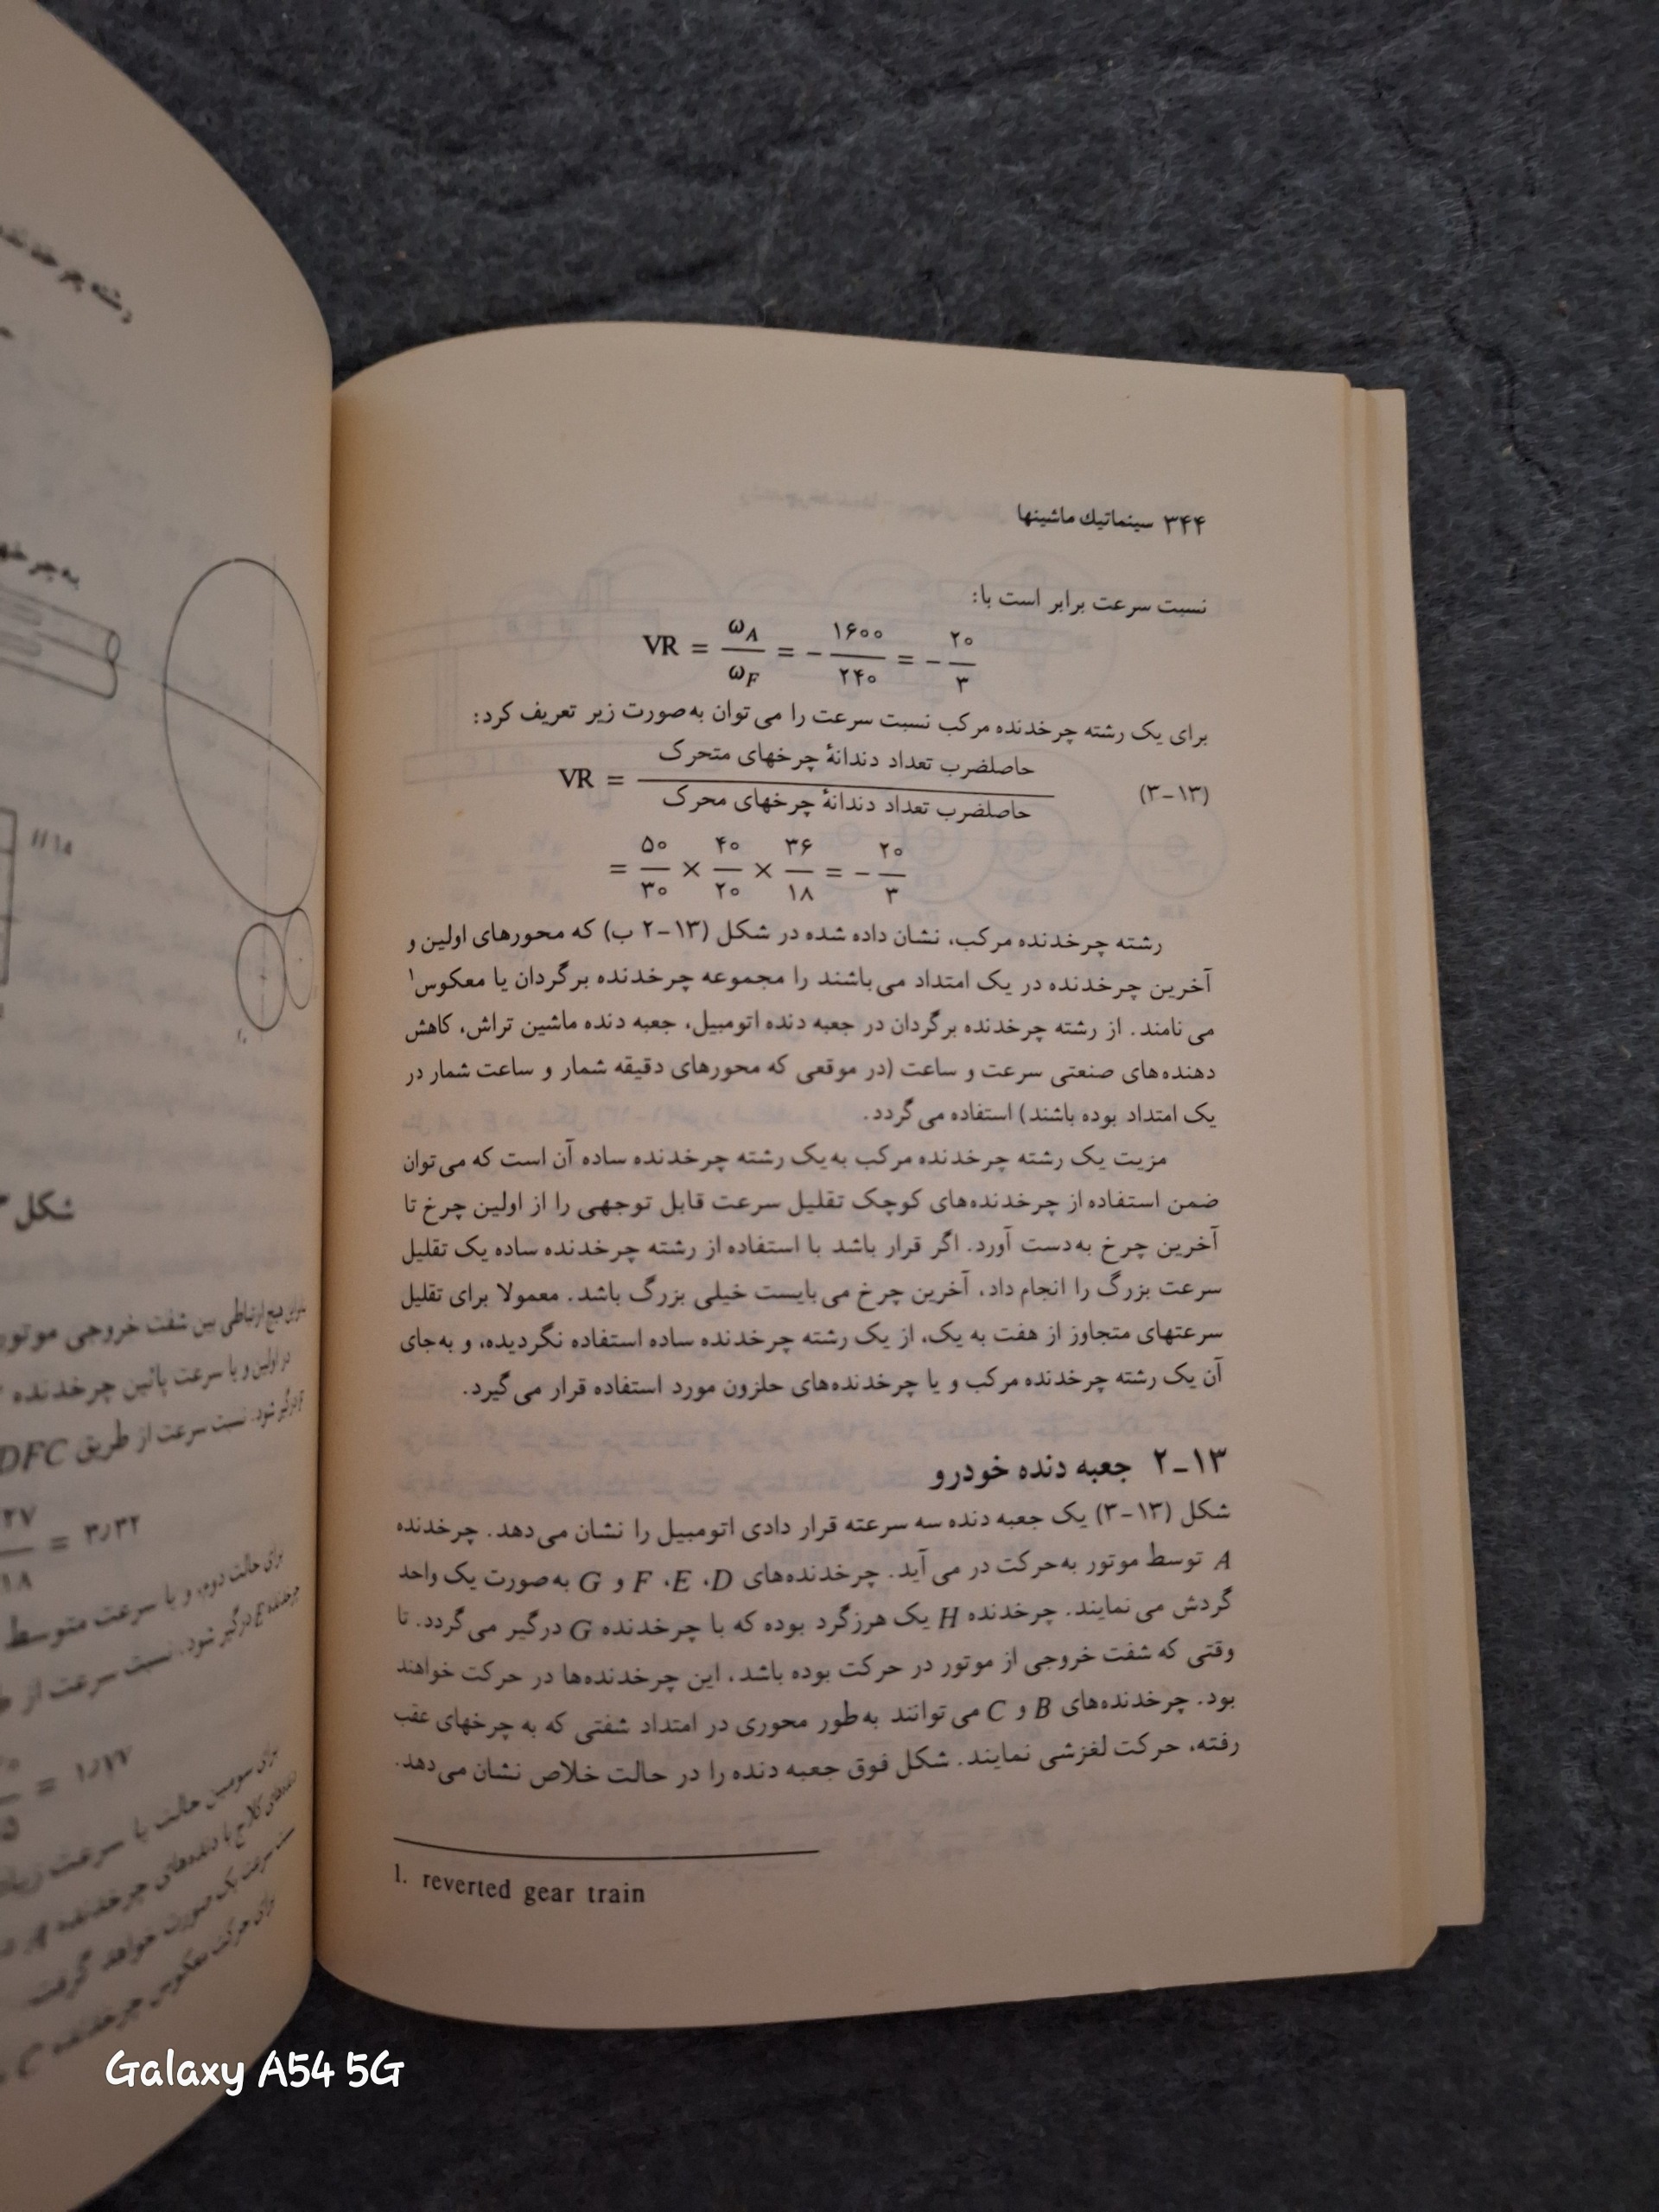 ۳۴۴ سینماتیك ماشینها
نسبت سرعت برابر است با:
VR = ω_A / ω_F = − ۱۶۰۰ / ۲۴۰ = − ۲۰ / ۳
برای یک رشته چرخدنده مرکب نسبت سرعت را می‌توان به‌صورت زیر تعریف کرد:
(۱۳–۳) VR = حاصلضرب تعداد دندانهٔ چرخهای متحرک / حاصلضرب تعداد دندانهٔ چرخهای محرک
= ۵۰ / ۳۰ × ۴۰ / ۲۰ × ۳۶ / ۱۸ = − ۲۰ / ۳
رشته چرخدنده مرکب، نشان داده شده در شکل (۱۳–۲ ب) که محورهای اولین و
آخرین چرخدنده در یک امتداد می‌باشند را مجموعه چرخدنده برگردان یا معکوس۱
می‌نامند. از رشته چرخدنده برگردان در جعبه دنده اتومبیل، جعبه دنده ماشین تراش، کاهش
دهنده‌های صنعتی سرعت و ساعت (در موقعی که محورهای دقیقه شمار و ساعت شمار در
یک امتداد بوده باشند) استفاده می‌گردد.
مزیت یک رشته چرخدنده مرکب به‌یک رشته چرخدنده ساده آن است که می‌توان
ضمن استفاده از چرخدنده‌های کوچک تقلیل سرعت قابل توجهی را از اولین چرخ تا
آخرین چرخ به‌دست آورد. اگر قرار باشد با استفاده از رشته چرخدنده ساده یک تقلیل
سرعت بزرگ را انجام داد، آخرین چرخ می‌بایست خیلی بزرگ باشد. معمولا برای تقلیل
سرعتهای متجاوز از هفت به یک، از یک رشته چرخدنده ساده استفاده نگردیده، و به‌جای
آن یک رشته چرخدنده مرکب و یا چرخدنده‌های حلزون مورد استفاده قرار می‌گیرد.
۱۳–۲ جعبه دنده خودرو
شکل (۱۳–۳) یک جعبه دنده سه سرعته قرار دادی اتومبیل را نشان می‌دهد. چرخدنده
A توسط موتور به‌حرکت در می‌آید. چرخدنده‌های D، E، F و G به‌صورت یک واحد
گردش می‌نمایند. چرخدنده H یک هرزگرد بوده که با چرخدنده G درگیر می‌گردد. تا
وقتی که شفت خروجی از موتور در حرکت بوده باشد، این چرخدنده‌ها در حرکت خواهند
بود. چرخدنده‌های B و C می‌توانند به‌طور محوری در امتداد شفتی که به چرخهای عقب
رفته، حرکت لغزشی نمایند. شکل فوق جعبه دنده را در حالت خلاص نشان می‌دهد.
1. reverted gear train
رشته چرخدنده
به چرخها
شکل
ارتباطی بین شفت خروجی موتور
در اولین و با سرعت پائین چرخدنده
درگیر شود. نسبت سرعت از طریق DFC
۲۷ / ۱۸ = ۳٫۳۲
برای حالت دوم، و با سرعت متوسط
چرخدنده E درگیر شود. نسبت سرعت از
= ۱٫۷۷
برای سومین حالت با سرعت
سرعت یک صورت خواهد گرفت.
برای حرکت معکوس چرخدنده C
Galaxy A54 5G